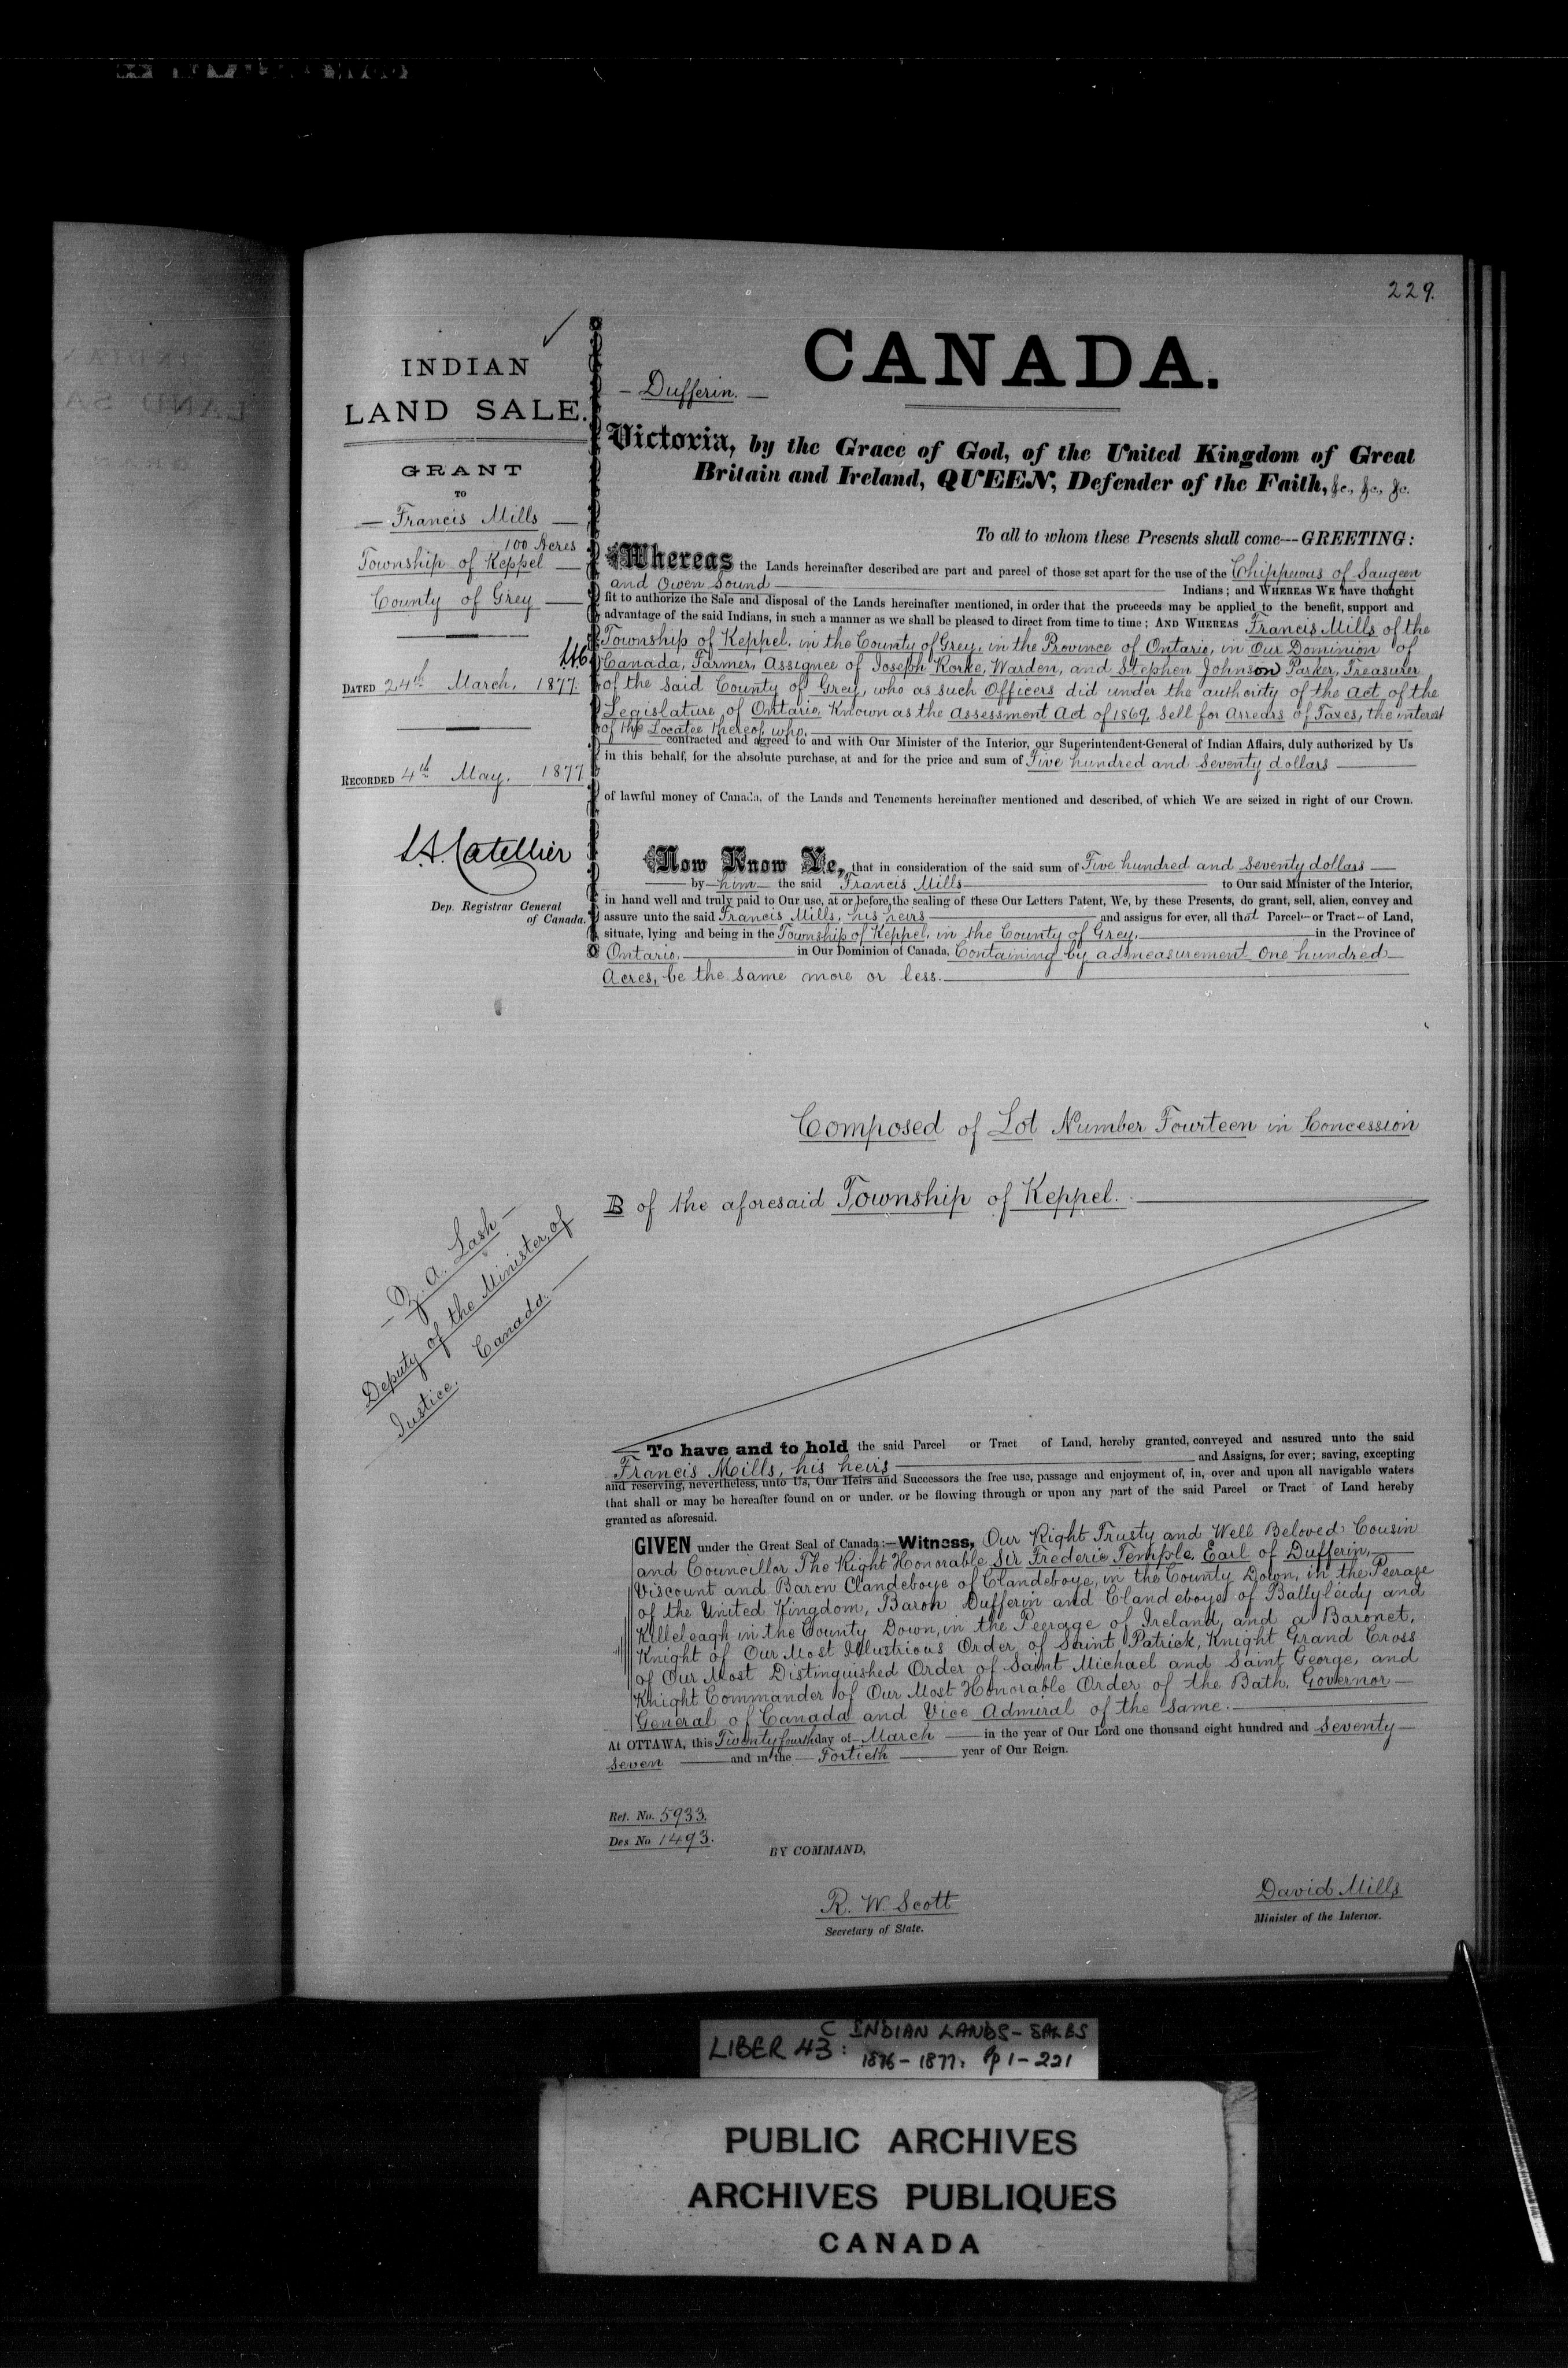 229.
INDIAN
LAND SALE.
GRANT
TO
— Francis Mills —
100 Acres
Township of Keppel —
County of Grey —
DATED 24th March, 1877.
RECORDED 4th May, 1877
L.A. Catellier
Dep. Registrar General
of Canada.
Z. A. Lash —
Deputy of the Minister of
Justice. Canada. —
CANADA.
— Dufferin. —
Victoria, by the Grace of God, of the United Kingdom of Great
Britain and Ireland, QUEEN, Defender of the Faith, &c., &c., &c.
To all to whom these Presents shall come---GREETING:
Whereas the Lands hereinafter described are part and parcel of those set apart for the use of the Chippewas of Saugeen
and Owen Sound Indians; and WHEREAS WE have thought
fit to authorize the Sale and disposal of the Lands hereinafter mentioned, in order that the proceeds may be applied to the benefit, support and
advantage of the said Indians, in such a manner as we shall be pleased to direct from time to time; AND WHEREAS Francis Mills of the
Township of Keppel, in the County of Grey, in the Province of Ontario, in Our Dominion of
Canada, Farmer, Assignee of Joseph Rorke, Warden, and Stephen Johnson Parker, Treasurer
of the said County of Grey, who as such Officers did under the authority of the Act of the
Legislature of Ontario, Known as the Assessment Act of 1869 Sell for Arrears of Taxes, the interest
of the Locatee thereof, who,
contracted and agreed to and with Our Minister of the Interior, our Superintendent-General of Indian Affairs, duly authorized by Us
in this behalf, for the absolute purchase, at and for the price and sum of Five hundred and Seventy dollars
of lawful money of Canada, of the Lands and Tenements hereinafter mentioned and described, of which We are seized in right of our Crown.
Now Know Ye, that in consideration of the said sum of Five hundred and Seventy dollars
by him the said Francis Mills to Our said Minister of the Interior,
in hand well and truly paid to Our use, at or before the sealing of these Our Letters Patent, We, by these Presents, do grant, sell, alien, convey and
assure unto the said Francis Mills, his heirs and assigns for ever, all that Parcel or Tract of Land,
situate, lying and being in the Township of Keppel, in the County of Grey, in the Province of
Ontario, in Our Dominion of Canada, Containing by admeasurement One hundred
Acres, be the same more or less.
Composed of Lot Number Fourteen in Concession
B of the aforesaid Township of Keppel.
To have and to hold the said Parcel or Tract of Land, hereby granted, conveyed and assured unto the said
Francis Mills, his heirs and Assigns, for ever; saving, excepting
and reserving, nevertheless, unto Us, Our Heirs and Successors the free use, passage and enjoyment of, in, over and upon all navigable waters
that shall or may be hereafter found on or under, or be flowing through or upon any part of the said Parcel or Tract of Land hereby
granted as aforesaid.
GIVEN under the Great Seal of Canada:—Witness, Our Right Trusty and Well Beloved Cousin
and Councillor The Right Honorable Sir Frederic Temple, Earl of Dufferin,
Viscount and Baron Clandeboye of Clandeboye, in the County Down, in the Peerage
of the United Kingdom, Baron Dufferin and Clandeboye of Ballyleidy and
Killeleagh in the County Down, in the Peerage of Ireland, and a Baronet,
Knight of Our Most Illustrious Order of Saint Patrick, Knight Grand Cross
of Our Most Distinguished Order of Saint Michael and Saint George, and
Knight Commander of Our Most Honorable Order of the Bath. Governor
General of Canada and Vice Admiral of the same.
At OTTAWA, this Twenty fourth day of March in the year of Our Lord one thousand eight hundred and Seventy
Seven and in the Fortieth year of Our Reign.
Ref. No. 5933.
Des No 1493.
BY COMMAND,
R. W. Scott
Secretary of State.
David Mills
Minister of the Interior.
LIBER 43: C INDIAN LANDS - SALES
1876 - 1877: Pp 1 - 221
PUBLIC ARCHIVES
ARCHIVES PUBLIQUES
CANADA